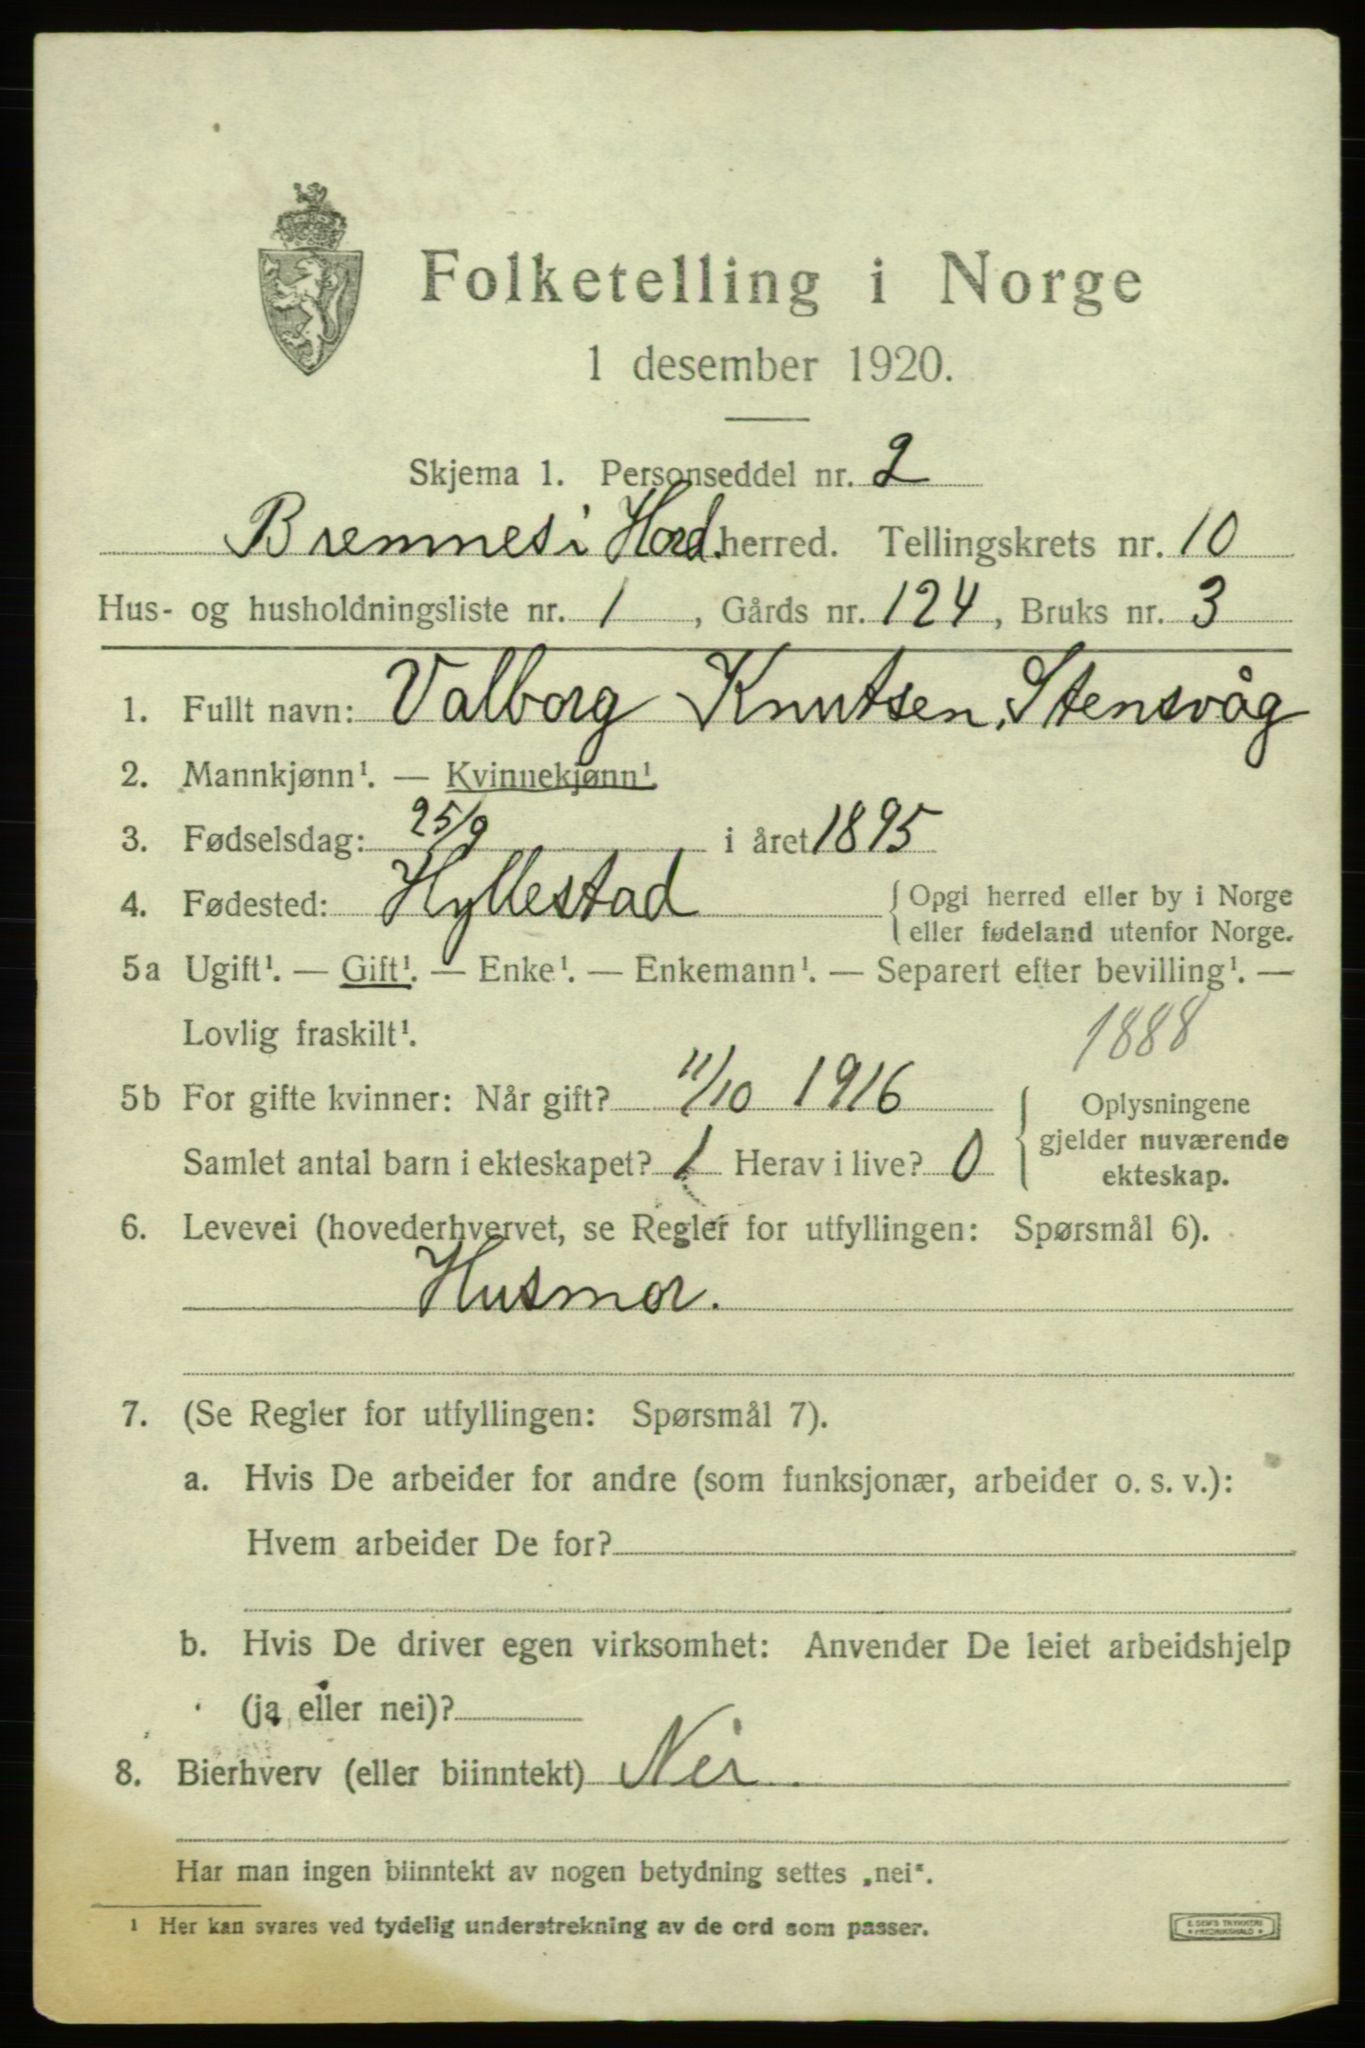 Folketelling i Norge
1 desember 1920.
Skjema 1. Personseddel nr. 2
Bremnes i Hord. herred. Tellingskrets nr. 10
Hus- og husholdningsliste nr. 1, Gårds nr. 124, Bruks nr. 3
1. Fullt navn: Valborg Knutsen, Stensvåg
2. Mannkjønn¹. — Kvinnekjønn¹.
3. Fødselsdag: 25/9 i året 1895
4. Fødested: Hyllestad { Opgi herred eller by i Norge
eller fødeland utenfor Norge.
5a Ugift¹. — Gift¹. — Enke¹. — Enkemann¹. — Separert efter bevilling¹. —
Lovlig fraskilt¹.
1888
5b For gifte kvinner: Når gift? 11/10 1916
Samlet antal barn i ekteskapet? 1 Herav i live? 0
{ Oplysningene
gjelder nuværende
ekteskap.
6. Levevei (hovederhvervet, se Regler for utfyllingen: Spørsmål 6).
Husmor.
7. (Se Regler for utfyllingen: Spørsmål 7).
a. Hvis De arbeider for andre (som funksjonær, arbeider o. s. v.):
Hvem arbeider De for?
b. Hvis De driver egen virksomhet: Anvender De leiet arbeidshjelp
(ja eller nei)?
8. Bierhverv (eller biinntekt) Nei.
Har man ingen biinntekt av nogen betydning settes „nei“.
¹ Her kan svares ved tydelig understrekning av de ord som passer.
E. SEM'S TRYKKERI
FREDRIKSHALD